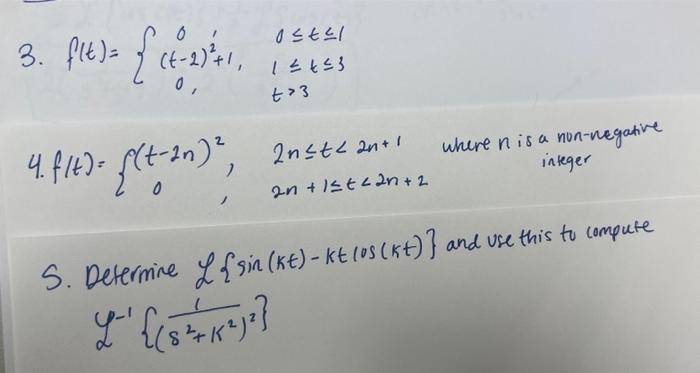 3. f(t) = { 0, 0 ≤ t ≤ 1
(t-2)²+1, 1 ≤ t ≤ 3
0, t > 3
4. f(t) = { (t-2n)², 2n ≤ t < 2n+1 where n is a non-negative integer
0, 2n+1 ≤ t < 2n+2
5. Determine ℒ{sin(kt) - kt cos(kt)} and use this to compute
ℒ⁻¹{1/(s²+k²)²}